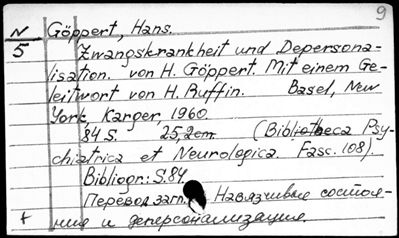 9
N Göppert, Hans.
5 Zwangskrankheit und Depersona=
lisation. von H. Göppert. Mit einem Ge-
leitwort von H. Ruffin. Basel, New
York, Karger, 1960.
84 S. 25,2cm. (Bibliotheca Psy-
chiatrica et Neurologica. Fasc. 108).
Bibliogr.: S. 84
Перевод загл. Навязчивые состоя-
+ ния и деперсонализация.